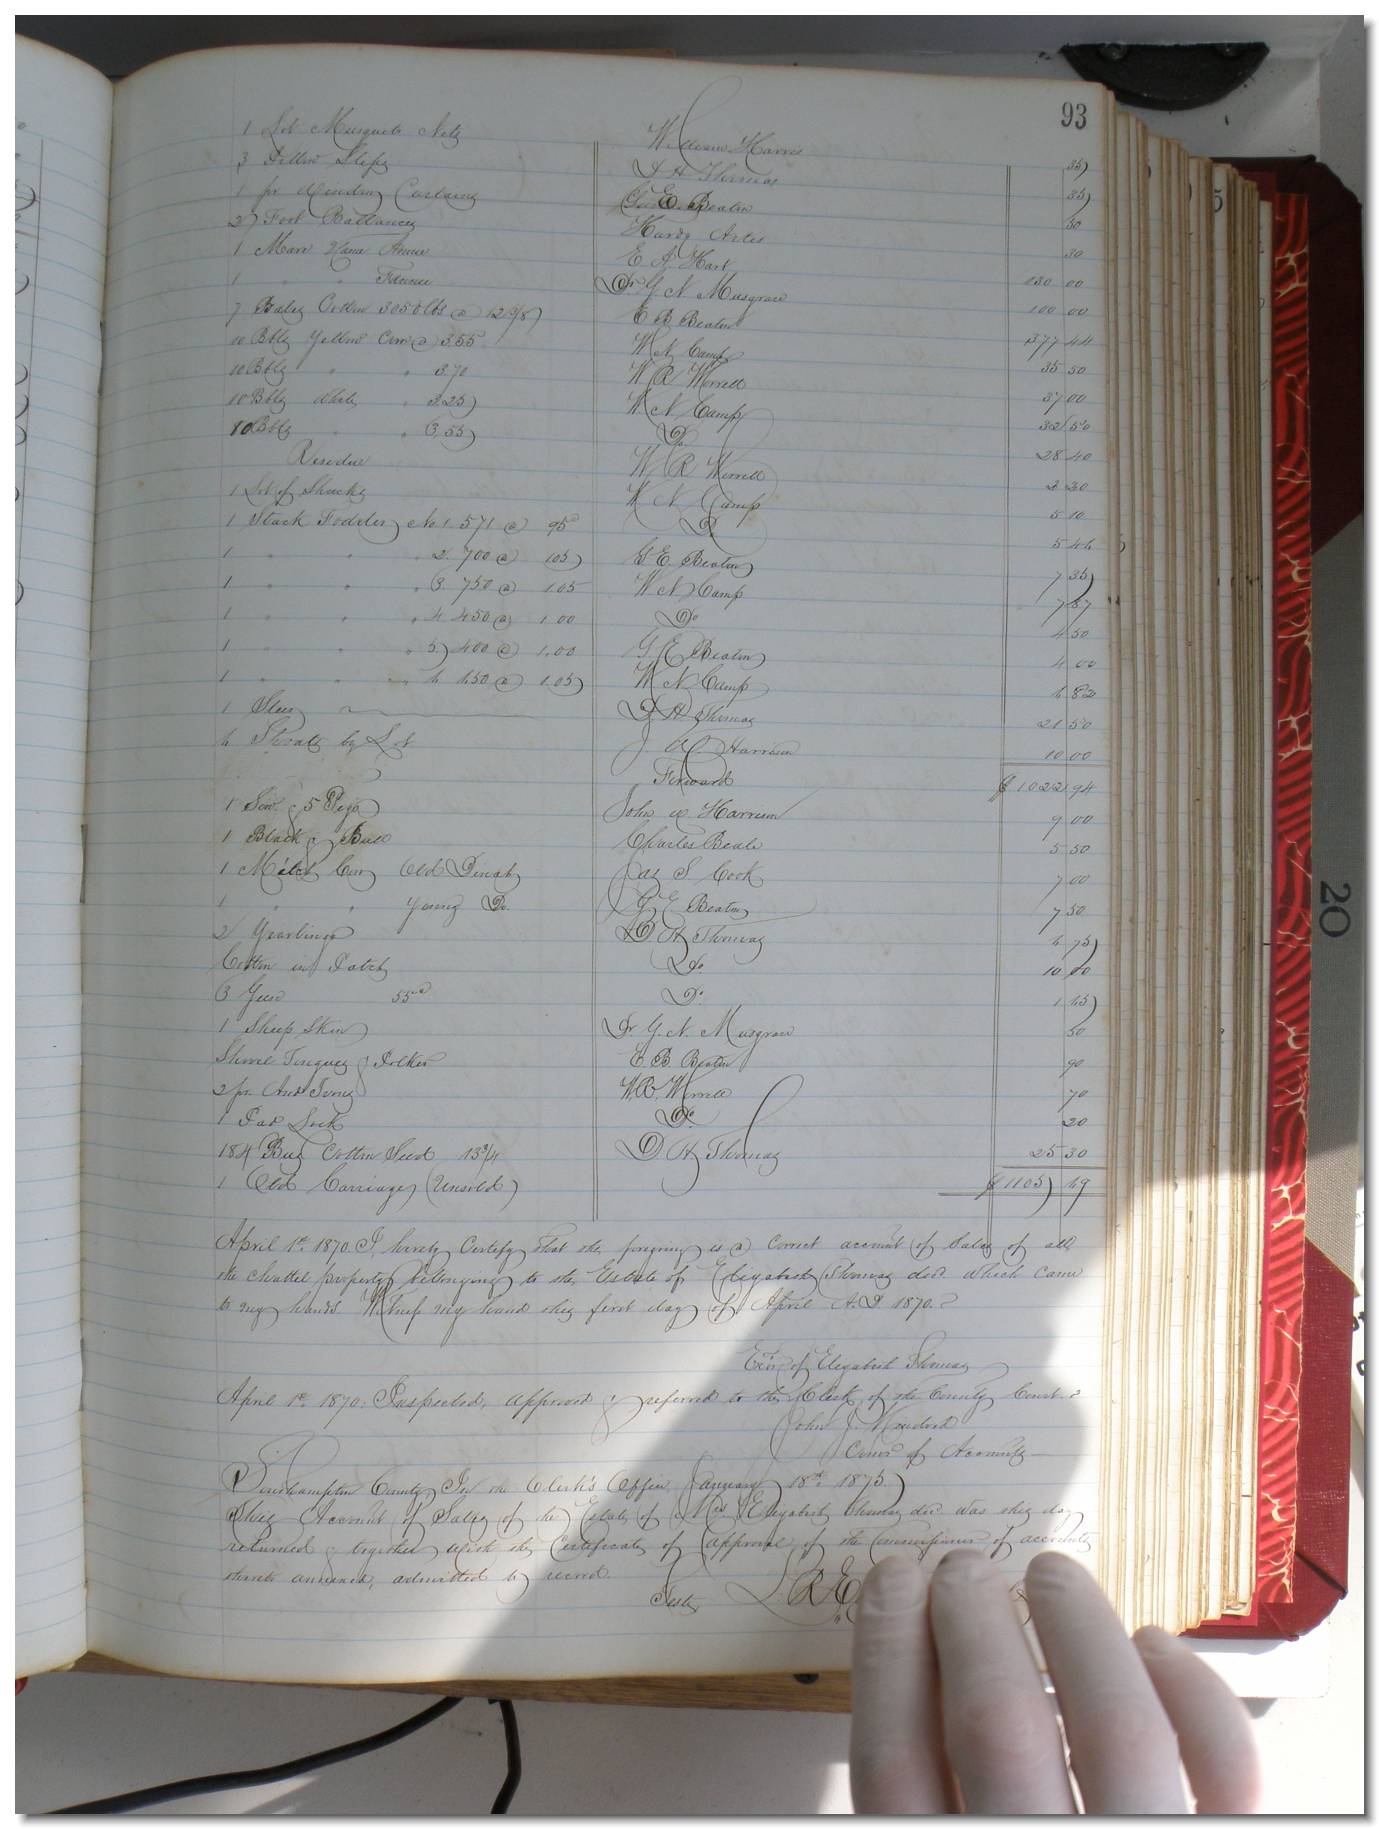 93
1 Lot Musqueto Netg William Harris 35
3 Pillow Slips D H Thomas 35
1 pr Window Curtains Geo E. Beaton 50
2 Foot Ballances Hardy Artis 30
1 Mare Name Annie E A Hart 130 00
1 " " Fannie Dr G N Musgrave 100 00
7 Bales Cotton 3050 lbs @ 12 3/8 E B Beaton 377 44
10 Bbls Yellow Corn @ 3.55 W N Camp 35 50
10 Bbls " " 3.70 W R Worrell 37 00
10 Bbls White " 3.25 W N Camp 32 50
8 Bbls " " 3.55 Do 28 40
Residue W R Worrell 2 30
1 Lot of Shucks W N Camp 5 10
1 Stack Fodder No 1 571 @ 95 Do 5 46
1 " " " 2. 700 @ 105 G E Beaton 7 35
1 " " " 3 750 @ 1.05 W N Camp 7 87
1 " " " 4 450 @ 1.00 Do 4 50
1 " " " 5 400 @ 1.00 G E Beaton 4 00
1 " " " 6 650 @ 1.05 W N Camp 6 82
1 Steer D H Thomas 21 50
6 Shoats by Lot J. W. Harrison 10 00
Forward $1022 94
1 Sow & 5 Pigs John W Harrison 9 00
1 Black & Bull Charles Beale 5 50
1 Milch Cow Old Dinah Jas S Cook 7 00
1 " " Young Do. G E Beaton 7 50
2 Yearlings D. H Thomas 6 75
Cotton in Patch Do 10 00
3 55c Do 1 65
1 Sheep Skin Dr G. N. Musgrave 50
Shovel Tongues & Potker E. B. Beaton 90
2 pr And Irons W. R. Worrell 70
1 Pad Lock Do 20
184 Bus Cotton Seed 13 3/4 D H Thomas 25 30
1 Old Carriage (Unsold) $1105 19
April 1st 1870 I hereby Certify that the foregoing is a correct account of Sales of all
the chattel property belonging to the Estate of Elizabeth Thomas decd. which came
to my hands. Witness my hand this first day of April A.D. 1870.
Exor of Elizabeth Thomas
April 1st 1870. Inspected, approved & referred to the Clerk of the County Court.
John J. Kindred
Comr of Accounts
Southampton County In the Clerk's Office January 18th 1875
This Account of Sales of the Estate of Mrs Elizabeth Thomas decd was this day
returned & together with the Certificate of approval of the Commissioner of accounts
thereto annexed, admitted to record.
Teste L. R. E
5
20